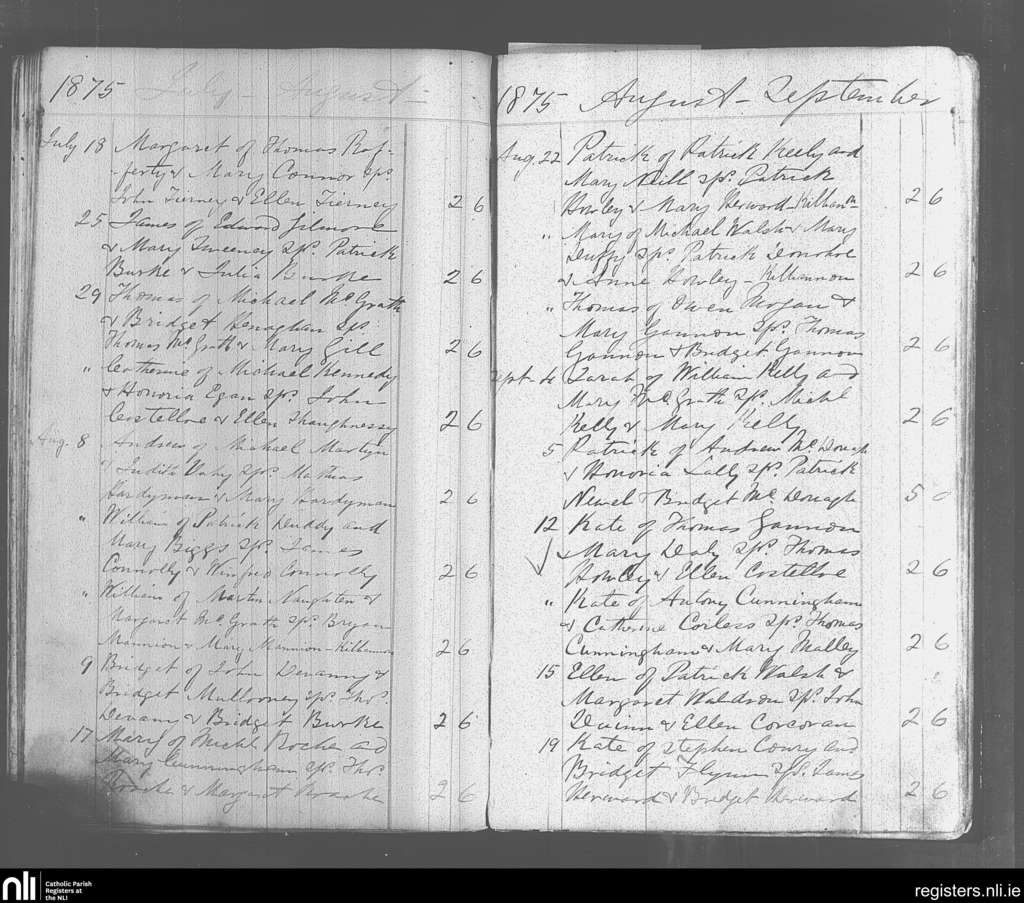 1875 July - August -
July 18 Margaret of Thomas Raf-
-ferty & Mary Connor Sps
John Tierney & Ellen Tierney 2 6
25 James of Edward Gilmore
& Mary Sweeney Sps. Patrick
Burke & Julia Burke 2 6
29 Thomas of Michael McGrath
& Bridget Henaghan Sps
Thomas McGrath & Mary Gill 2 6
" Catherine of Michael Kennedy
& Honoria Egan Sps. John
Costelloe & Ellen Shaughnessy 2 6
Aug. 8 Andrew of Michael Martyn
& Judith Sps. Mathias
Hardyman & Mary Hardyman 2 6
" William of Patrick Duddy and
Mary Biggs Sps. James
Connolly & Winfred Connolly 2 6
" William of Martin Naughten &
Margaret McGrath Sps. Bryan
Mannion & Mary Mannion - Kilbannon 2 6
9 Bridget of John Devanny &
Bridget Mullooney Sps. Thos.
Devany & Bridget Burke 2 6
17 Mary of Michl Roche ad
Mary Cunningham Sps. Thos.
Roache & Margaret Roache 2 6
1875 August - September
Aug. 22 Patrick of Patrick Keely and
Mary Neill Sps. Patrick
Howley & Mary Herword - Kilbann 2 6
" Mary of Michael Walsh & Mary
Duffy Sps. Patrick Donohoe
& Anne Howley - Kilbannon 2 6
" Thomas of Owen Mogan &
Mary Gannon Sps. Thomas
Gannon & Bridget Gannon 2 6
Sept. 4 Sarah of William Kelly and
Mary McGrath Sps. Michl
Kelly & Mary Kelly 2 6
5 Patrick of Andrew McDonagh
& Honoria Lally Sps. Patrick
Newel & Bridget McDonagh 5 0
12 Kate of Thomas Gannon
& Mary Daly Sps. Thomas
Howley & Ellen Costelloe 2 6
" Kate of Antony Cunningham
& Catherine Corless Sps. Thomas
Cunningham & Mary Malley 2 6
15 Ellen of Patrick Walsh &
Margaret Waldron Sps. John
Quinn & Ellen Corcoran 2 6
19 Kate of Stephen Conry and
Bridget Flynn Sps. James
Herword & Bridget Herword 2 6
nli Catholic Parish
Registers at
the NLI
registers.nli.ie